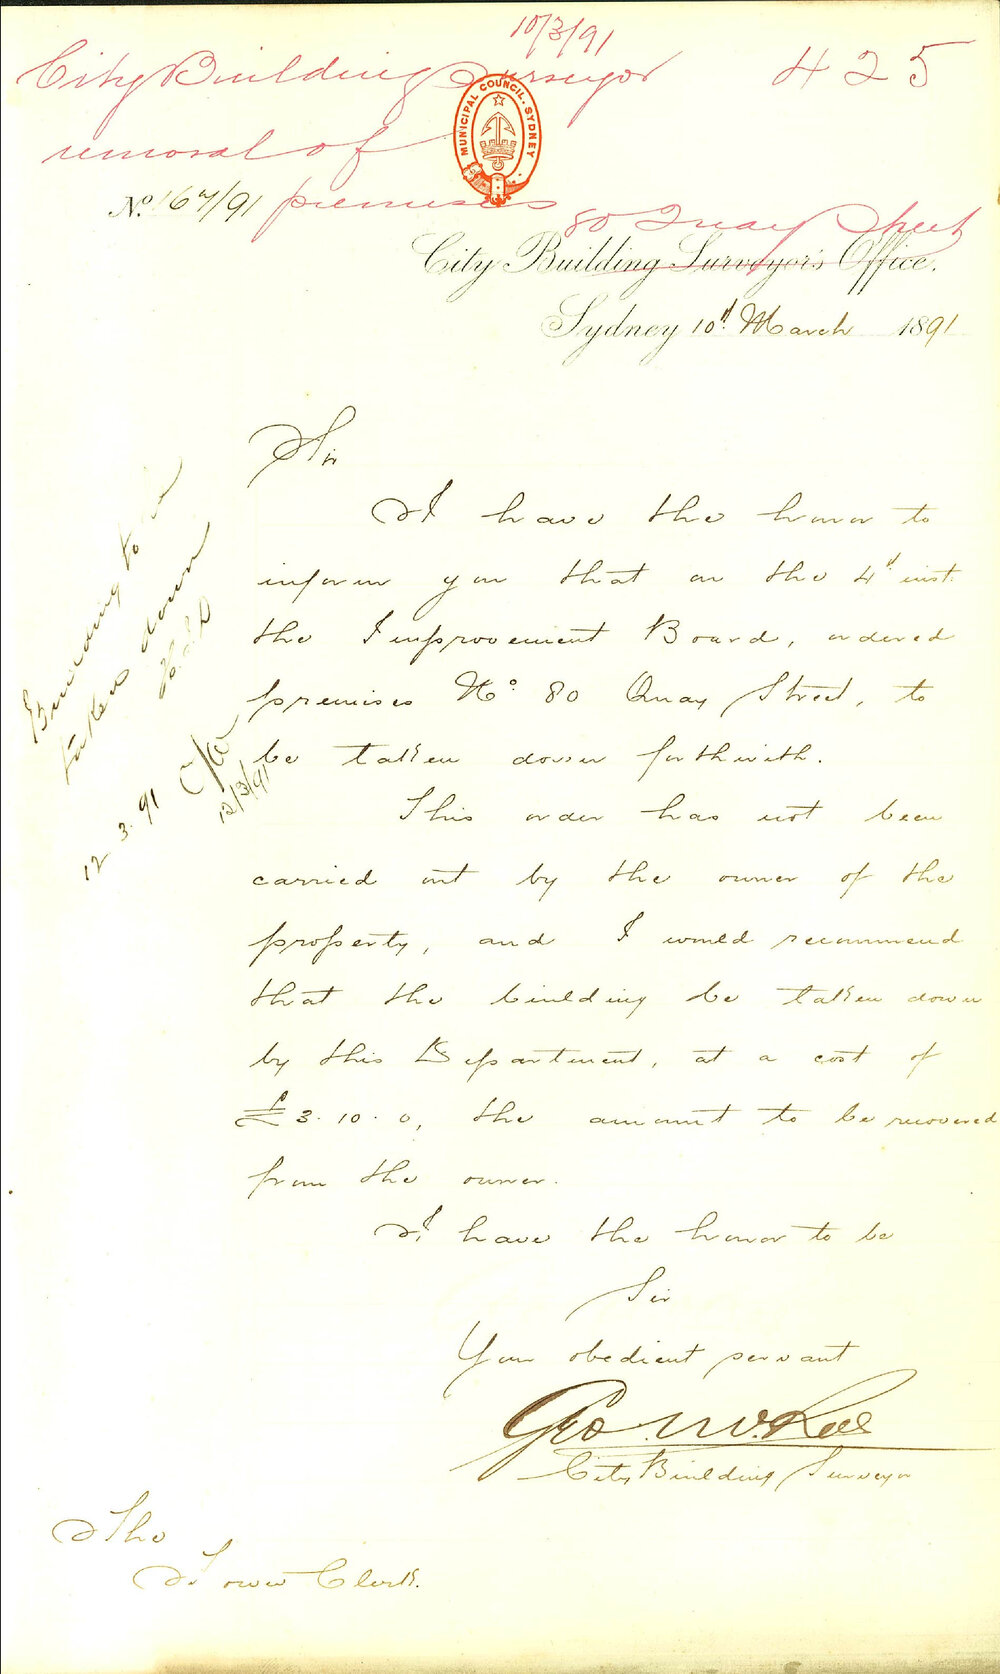 10/3/91
City Building Surveyor 425
removal of
premises 80 Quay Street
MUNICIPAL COUNCIL. SYDNEY
No. 167/91
City Building Surveyor's Office.
Sydney 10th March 1891
Sir
I have the honor to
inform you that on the 4th inst.
the Improvement Board, ordered
premises No 80 Quay Street, to
be taken down forthwith.
This order has not been
carried out by the owner of the
property, and I would recommend
that the building be taken down
by this Department, at a cost of
£3.10.0, the amount to be recovered
from the owner.
I have the honor to be
Sir
Your obedient servant
Geo.
City Building Surveyor
The
Town Clerk.
Building to be
taken down
12.3.91
12/3/91